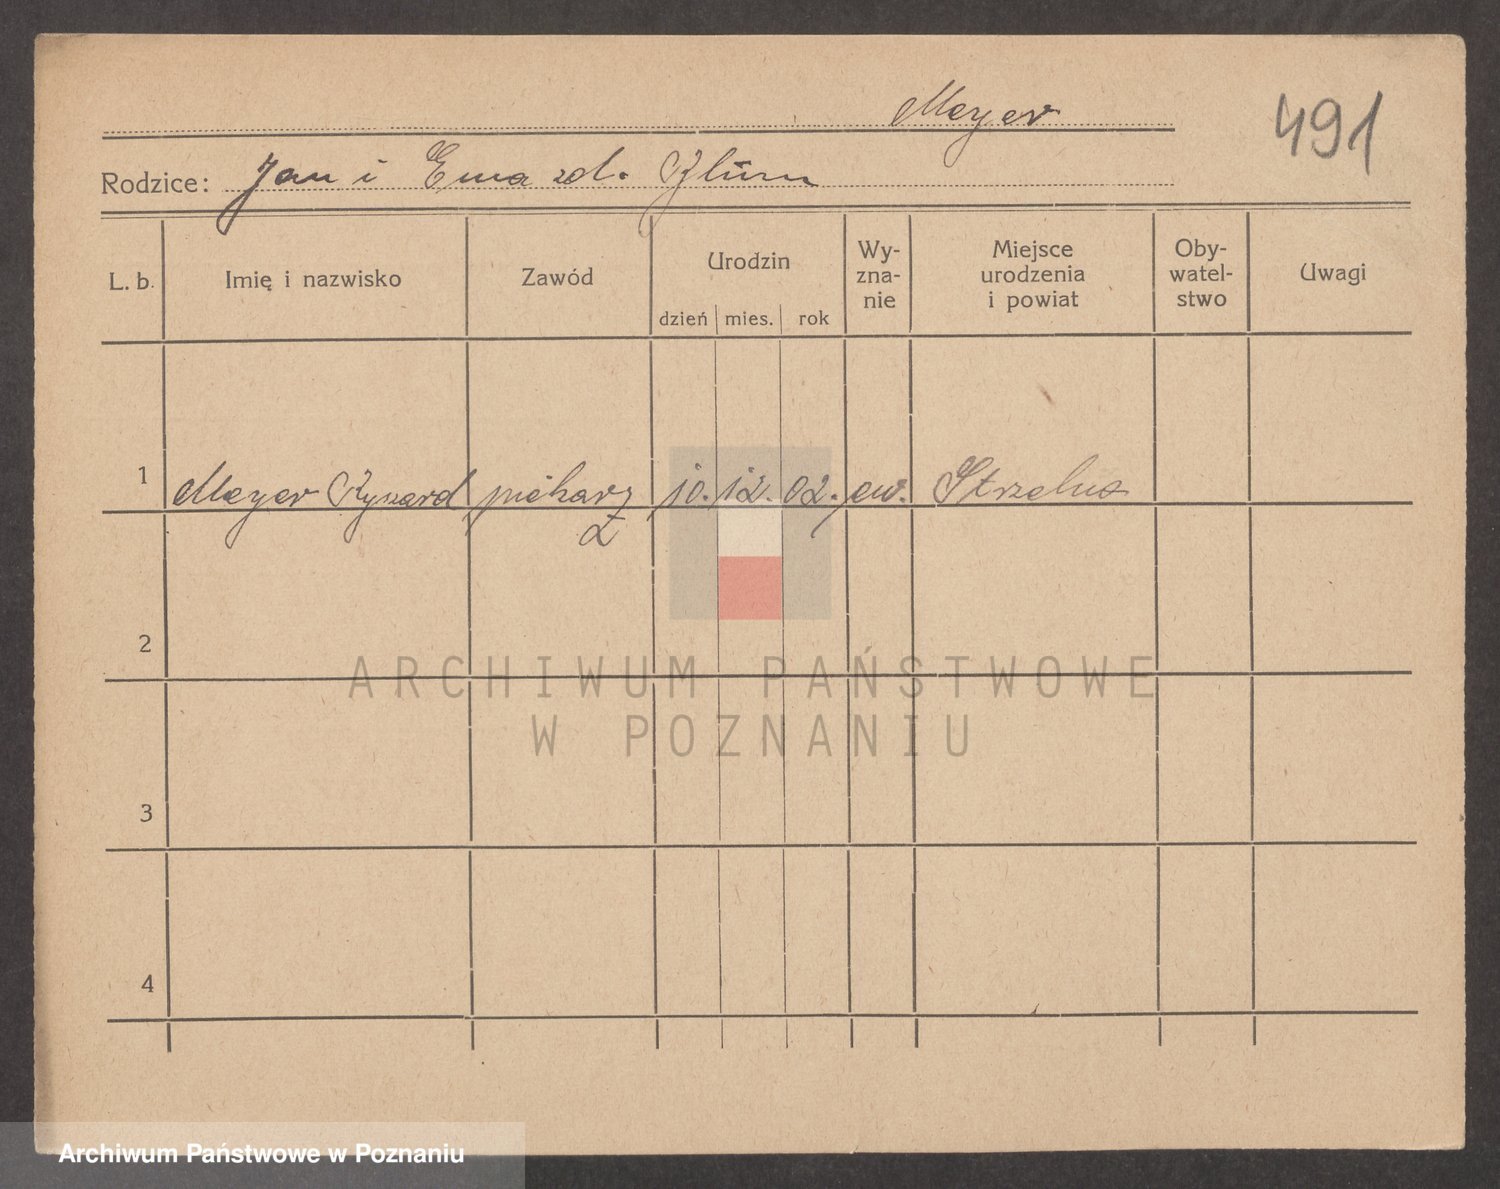 Meyer
491
Rodzice: Jan i Ema zd.
L. b.
Imię i nazwisko
Zawód
Urodzin
dzień
mies.
rok
Wy-
zna-
nie
Miejsce
urodzenia
i powiat
Oby-
watel-
stwo
Uwagi
1 Meyer Ryszard piekarz 10. 12. 02. ew. Strzelno
2
3
4
ARCHIWUM PAŃSTWOWE
W POZNANIU
Archiwum Państwowe w Poznaniu